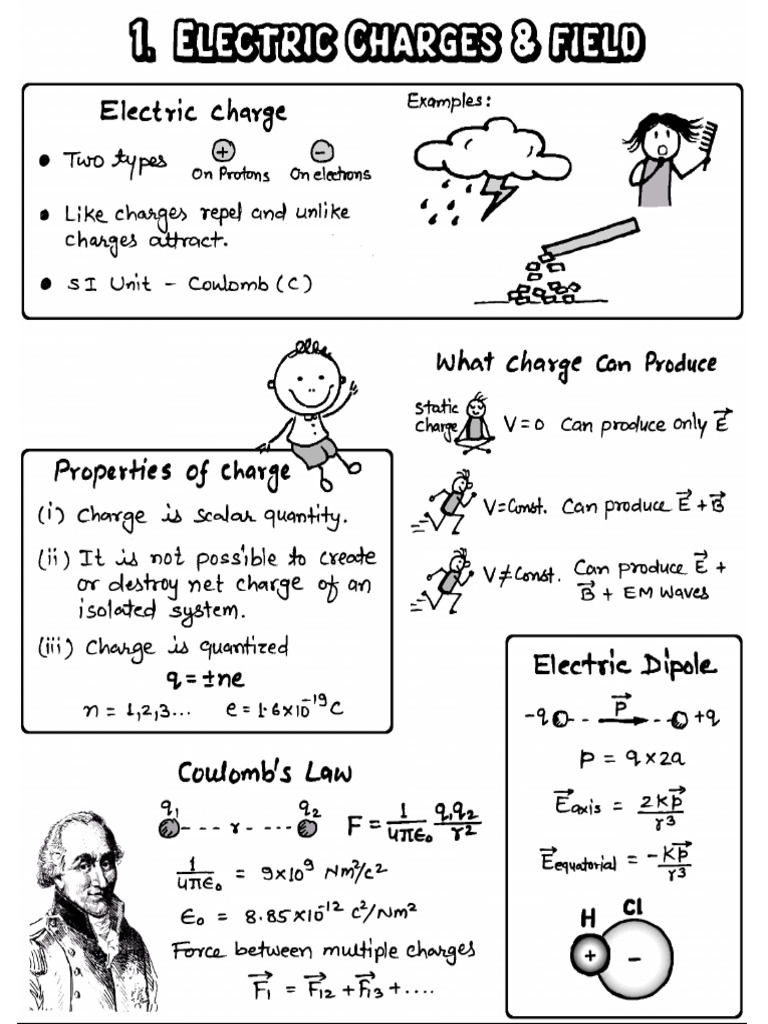 1. ELECTRIC CHARGES & FIELD
Electric charge
• Two types
+
On Protons
−
On electrons
• Like charges repel and unlike
charges attract.
• SI Unit – Coulomb (C)
Examples:
What Charge Can Produce
Static
Charge
V = 0 Can produce only E⃗
V = Const. Can produce E⃗ + B⃗
V ≠ Const. Can produce E⃗ +
B⃗ + EM Waves
Properties of charge
(i) Charge is scalar quantity.
(ii) It is not possible to create
or destroy net charge of an
isolated system.
(iii) Charge is quantized
q = ±ne
n = 1,2,3... e = 1.6×10⁻¹⁹C
Electric Dipole
-q P⃗ +q
p = q × 2a
E⃗axis = 2KP⃗/r³
E⃗equatorial = -KP⃗/r³
H Cl
+ −
Coulomb's Law
q₁ r q₂ F = 1/4πϵ₀ q₁q₂/r²
1/4πϵ₀ = 9×10⁹ Nm²/c²
ϵ₀ = 8.85×10⁻¹² C²/Nm²
Force between multiple charges
F⃗₁ = F⃗₁₂ + F⃗₁₃ + ....